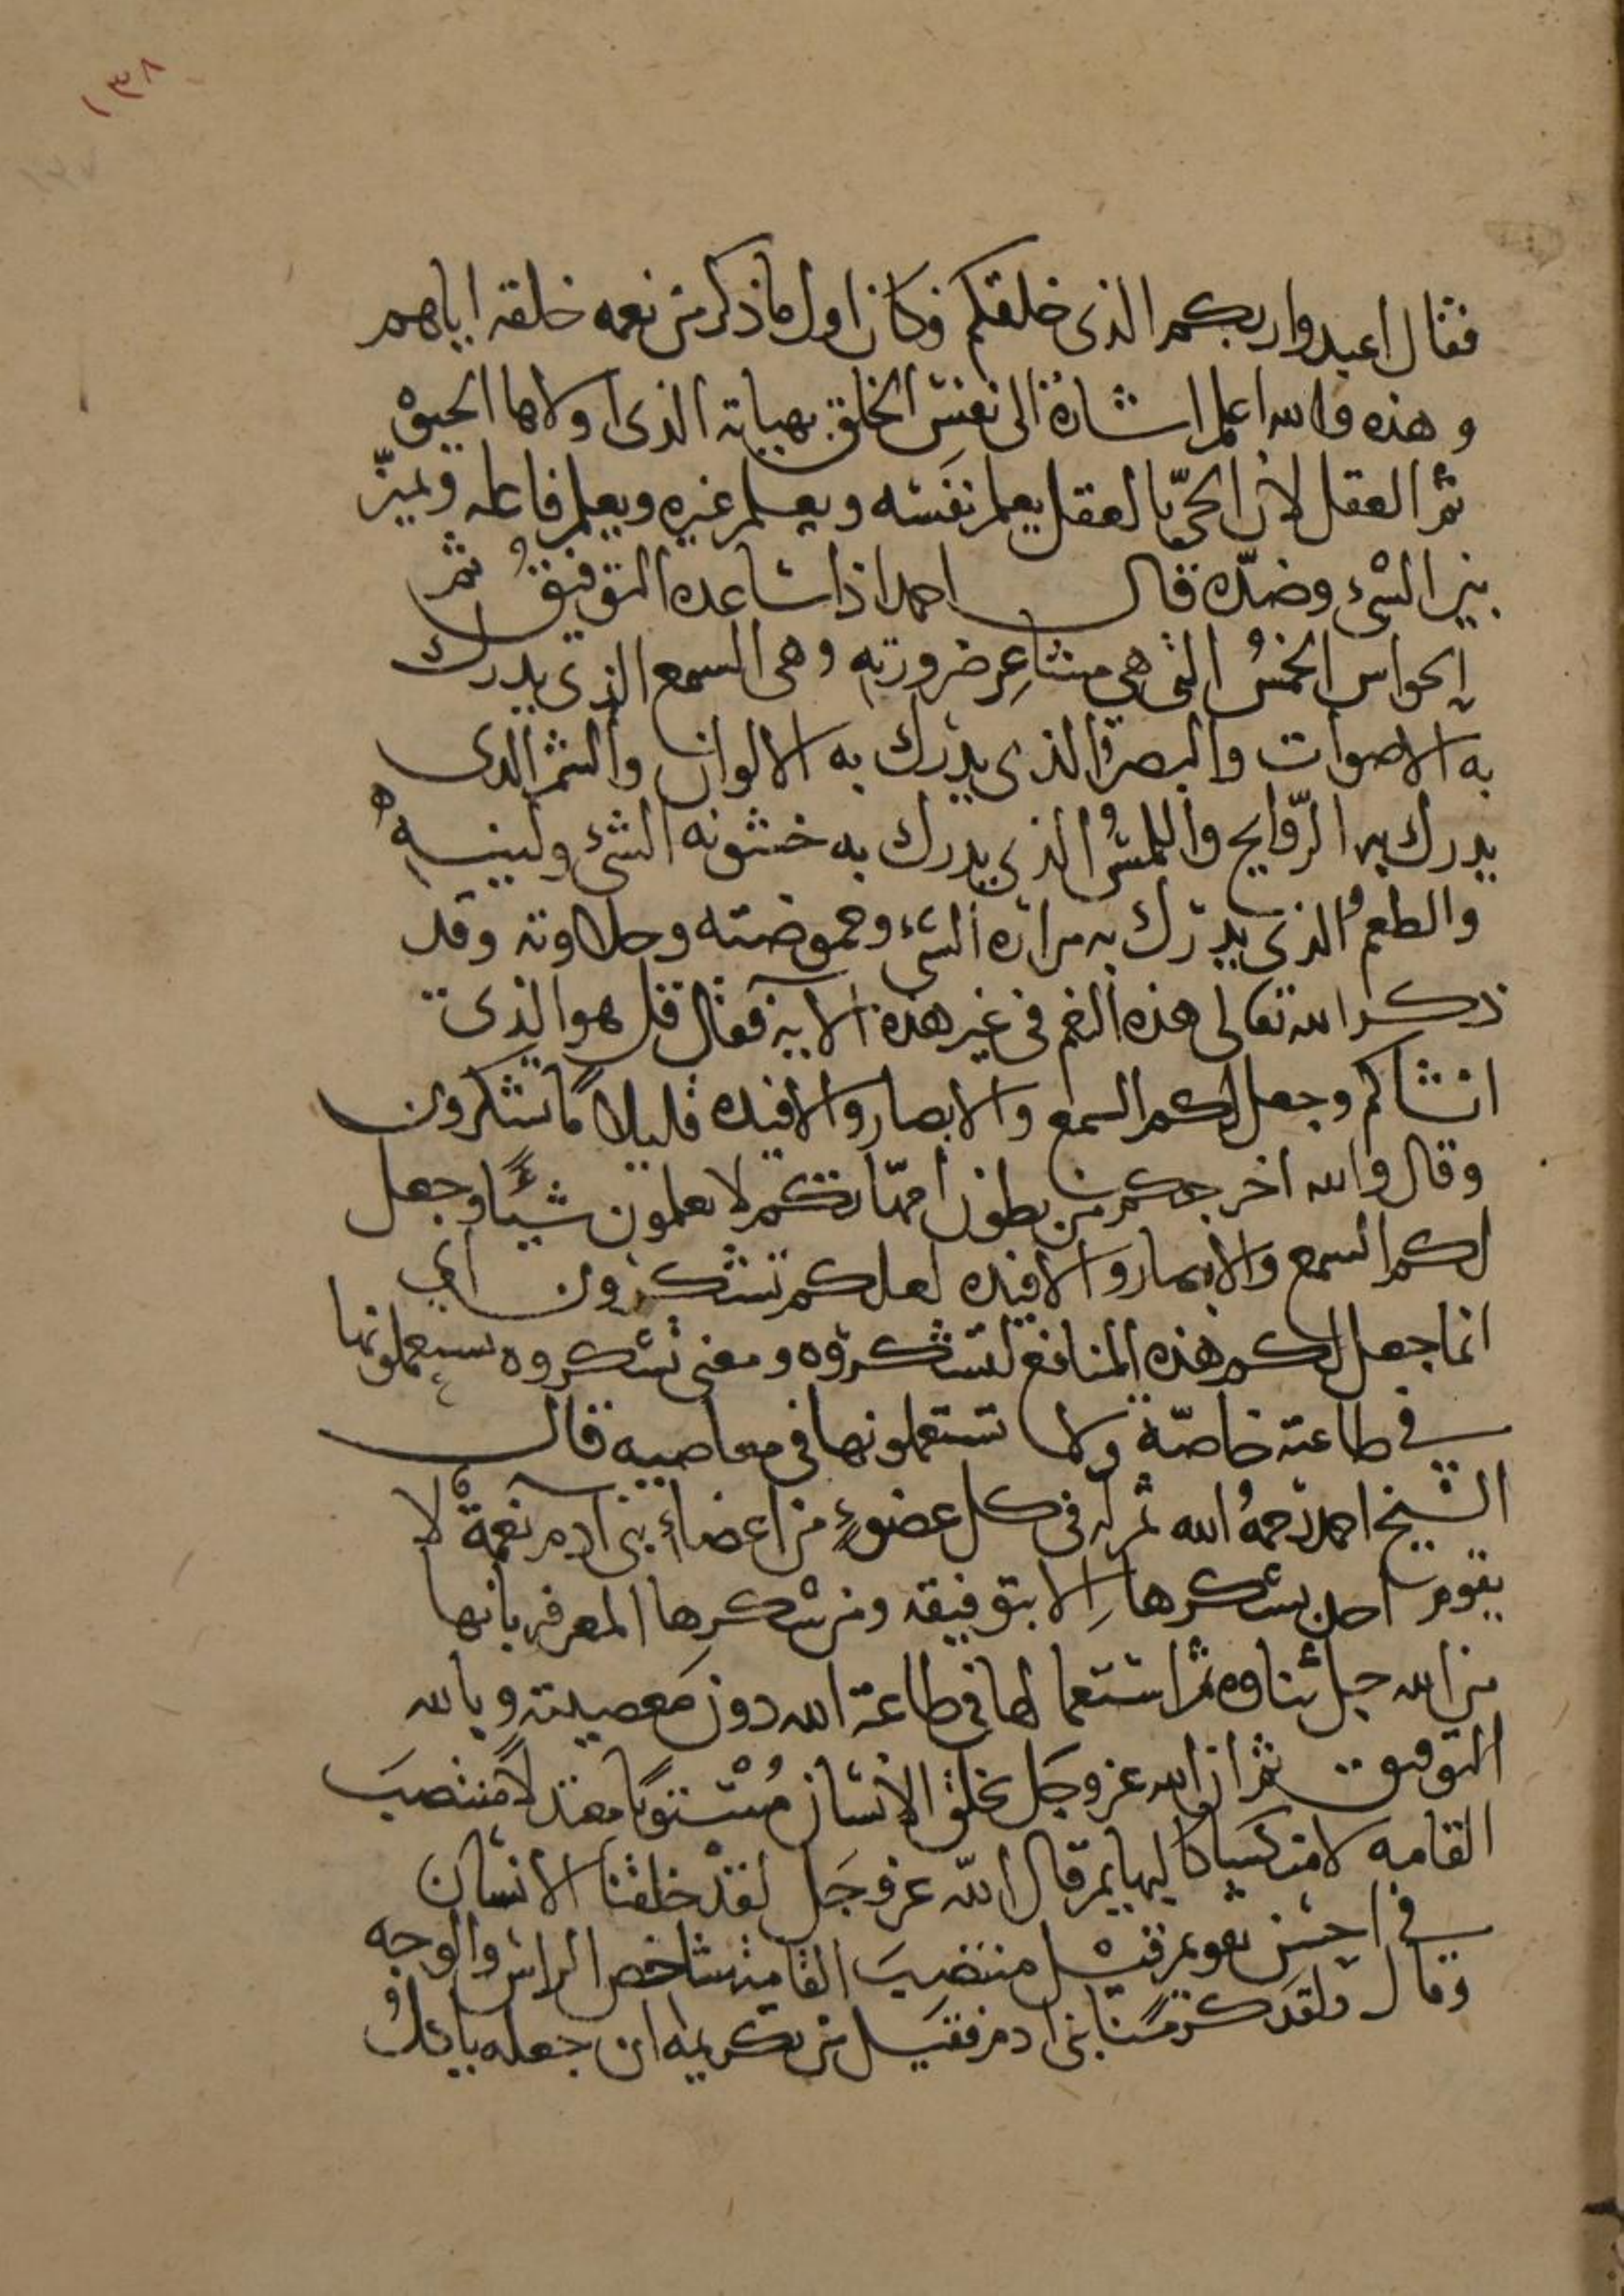 ١٣٨
فقال اعبدوا ربكم الذى خلقكم فكان اول ما ذكر من نعمه خلقه اياهم
وهذه والله اعلم اشارة الى نفس الخلق بهياته الذى اولاها الحيوة
ثم العقل لان الحىّ بالعقل يعلم نفسه ويعلم غيره ويعلم فاعله ويميّز
بين الشىء وضدّه قال احمد اذا ساعده التوفيق ثم
الحواس الخمسُ التى هى مشاعِر ضرورته وهى السمع الذى يدرك
به الاصوات والبصر الذى يدرك به الالوان والشم الذى
يدرك به الرّوايح واللمسُ الذى يدرك به خشونه الشىء ولينه
والطعمُ الذى يدرك به مرارة الشىء وحموضته وحلاوته وقد
ذكر الله تعالى هذه النعم فى غير هذه الآية فقال قل هو الذى
انشاكم وجعل لكم السمع والابصار والافيده قليلاً ما تشكرون
وقال والله اخرجكم من بطون امهّاتكم لا تعلمون شيئًا وجعل
لكم السمع والابصار والافيده لعلكم تشكرون اى
انما جعل لكم هذه المنافع لتشكروه ومعنى تشكروه تستعملونها
فى طاعته خاصّة ولا تستعملونها فى معاصيه قال
الشيخ احمد رحمهُ الله ثم له فى كل عضوٍ من اعضاء بنى آدم نعمة لا
يقوم احد بشكرها الا بتوفيقه ومن شكرها المعرفه بانها
من الله جل ثناوه ثم استعمالها فى طاعة الله دون معصيته وبالله
التوفيق ثم ان الله عز وجل خلق الانسان مُستويًا معتدلاً منتصبَ
القامه لا منكسًا كالبهايم قال الله عز وجَل لقد خلقنا الانسان
فى احسن تقويم قيل منتصِبَ القامة شاخص الراس والوجه
وقال ولقد كرّمنا بنى ادم فقيل من تكريمه ان جعله ياكلُ